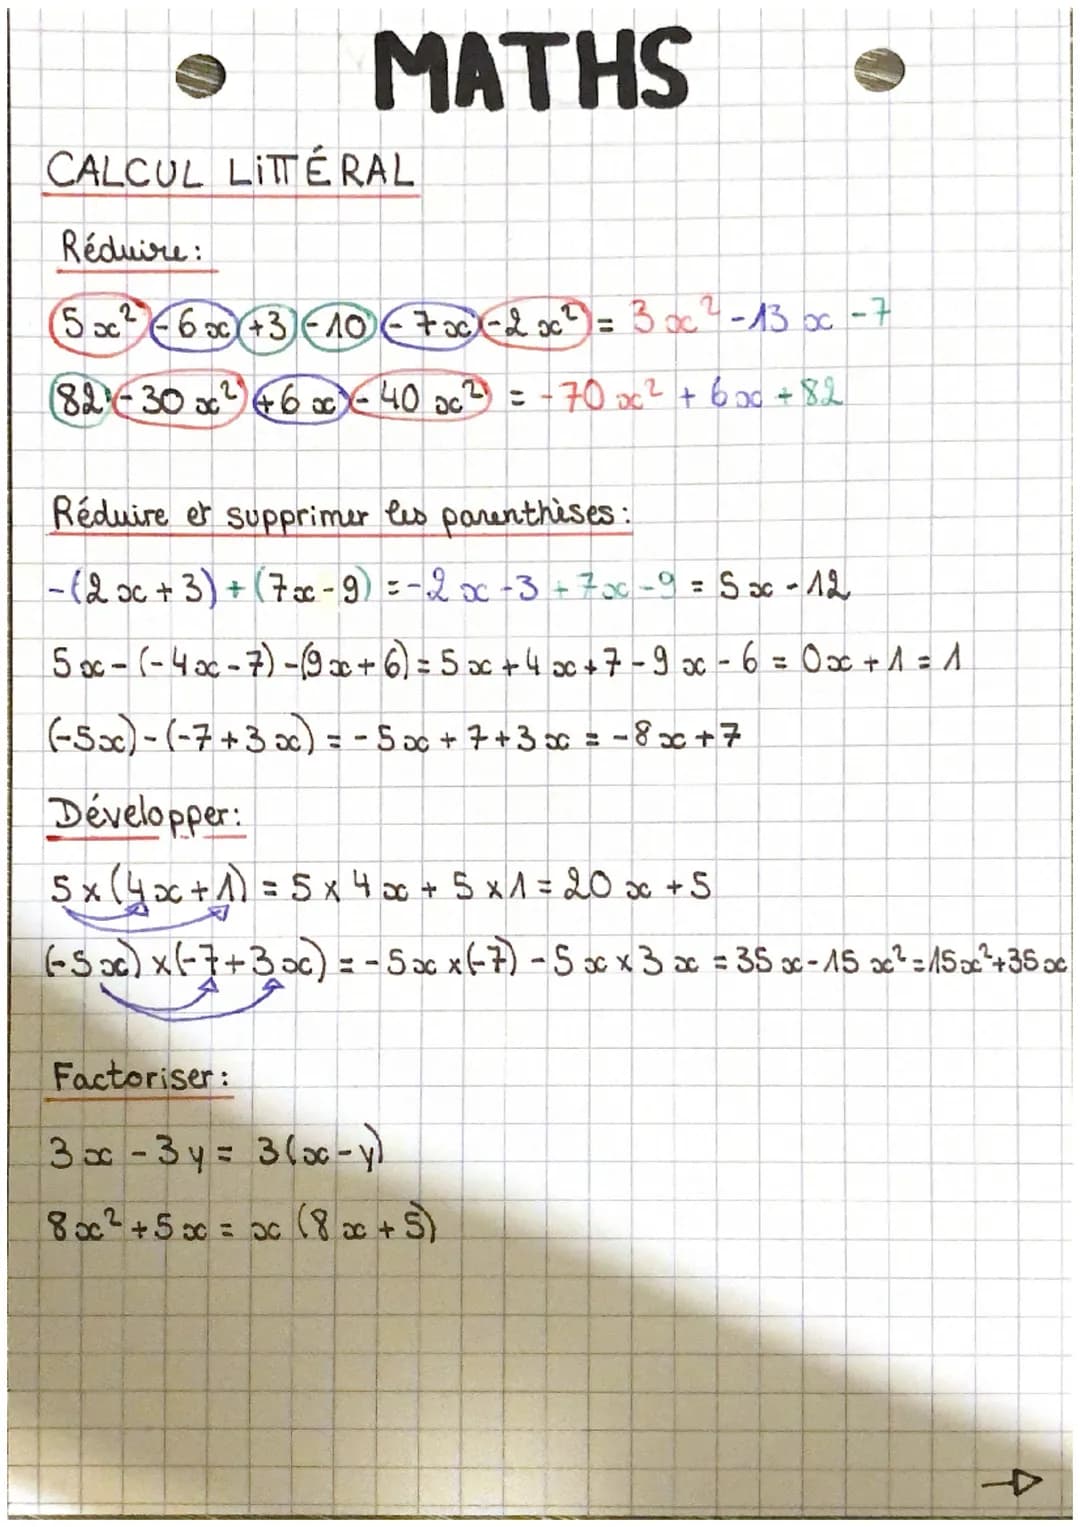 MATHS
CALCUL LITTÉRAL
Réduire :
5x² - 6x + 3 - 10 - 7x - 2x² = 3x² - 13x - 7
82 - 30x² + 6x - 40x² = -70x² + 6x + 82
Réduire et supprimer les parenthèses :
-(2x + 3) + (7x - 9) = -2x - 3 + 7x - 9 = 5x - 12
5x - (-4x - 7) - (9x + 6) = 5x + 4x + 7 - 9x - 6 = 0x + 1 = 1
(-5x) - (-7 + 3x) = -5x + 7 + 3x = -8x + 7
Développer :
5 × (4x + 1) = 5 × 4x + 5 × 1 = 20x + 5
(-5x) × (-7 + 3x) = -5x × (-7) - 5x × 3x = 35x - 15x² = 15x² + 35x
Factoriser :
3x - 3y = 3(x - y)
8x² + 5x = x (8x + 5)